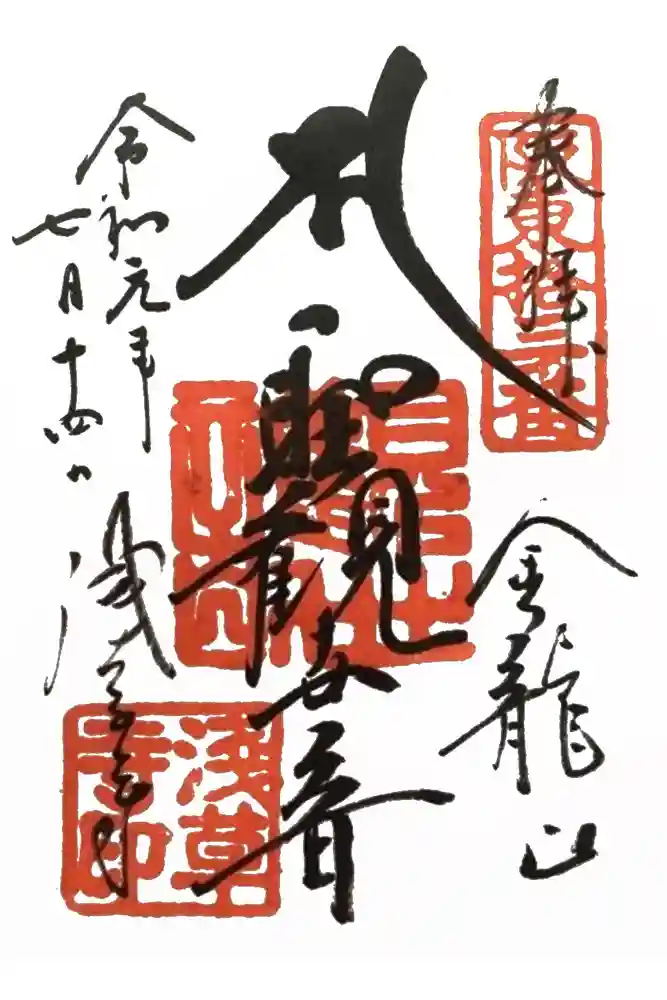 奉拝
阪東拾三番
金龍山
聖觀世音
令和元年
七月十四日
浅草寺
浅草寺印